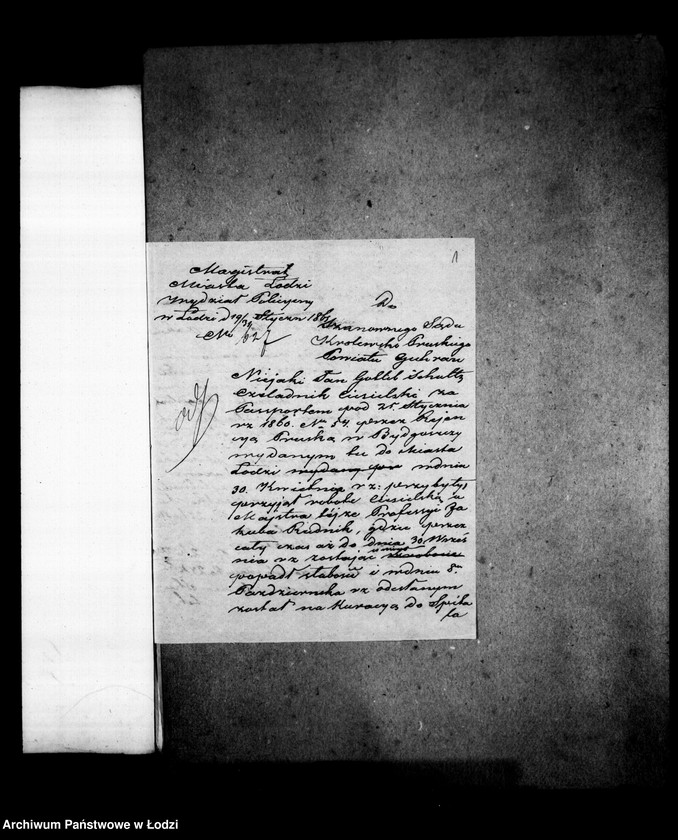 1
Magistrat
Miasta Łodzi
Wydział Policyjny
w Łodzi d 19/31 Styczn 1861
No 627
Do
Szanownego Sądu
Krolewsko Pruskiego
Powiatu
Niejaki Jan Gotlib Schultz
Czeladnik Ciesielski za
Paszportem pod 21 Stycznia
rz 1860. No 57. przez Rejen
cyą Pruską w Bydgoszczy
wydanym bu do Miasta
Łodzi wdniu
30. Kwietnia rz: przybyły,
przyjął robotę Ciesielską u
Majstra tejże Professyi Ja
kuba Rudnik, gdzie przez
cały czas aż do dnia 30. Wrześ
nia rz zostając
popadł słabość i wdniu 8o
Pazdziernika rz odesłanym
został na Kuracyą do Szpita
la
Archiwum Państwowe w Łodzi